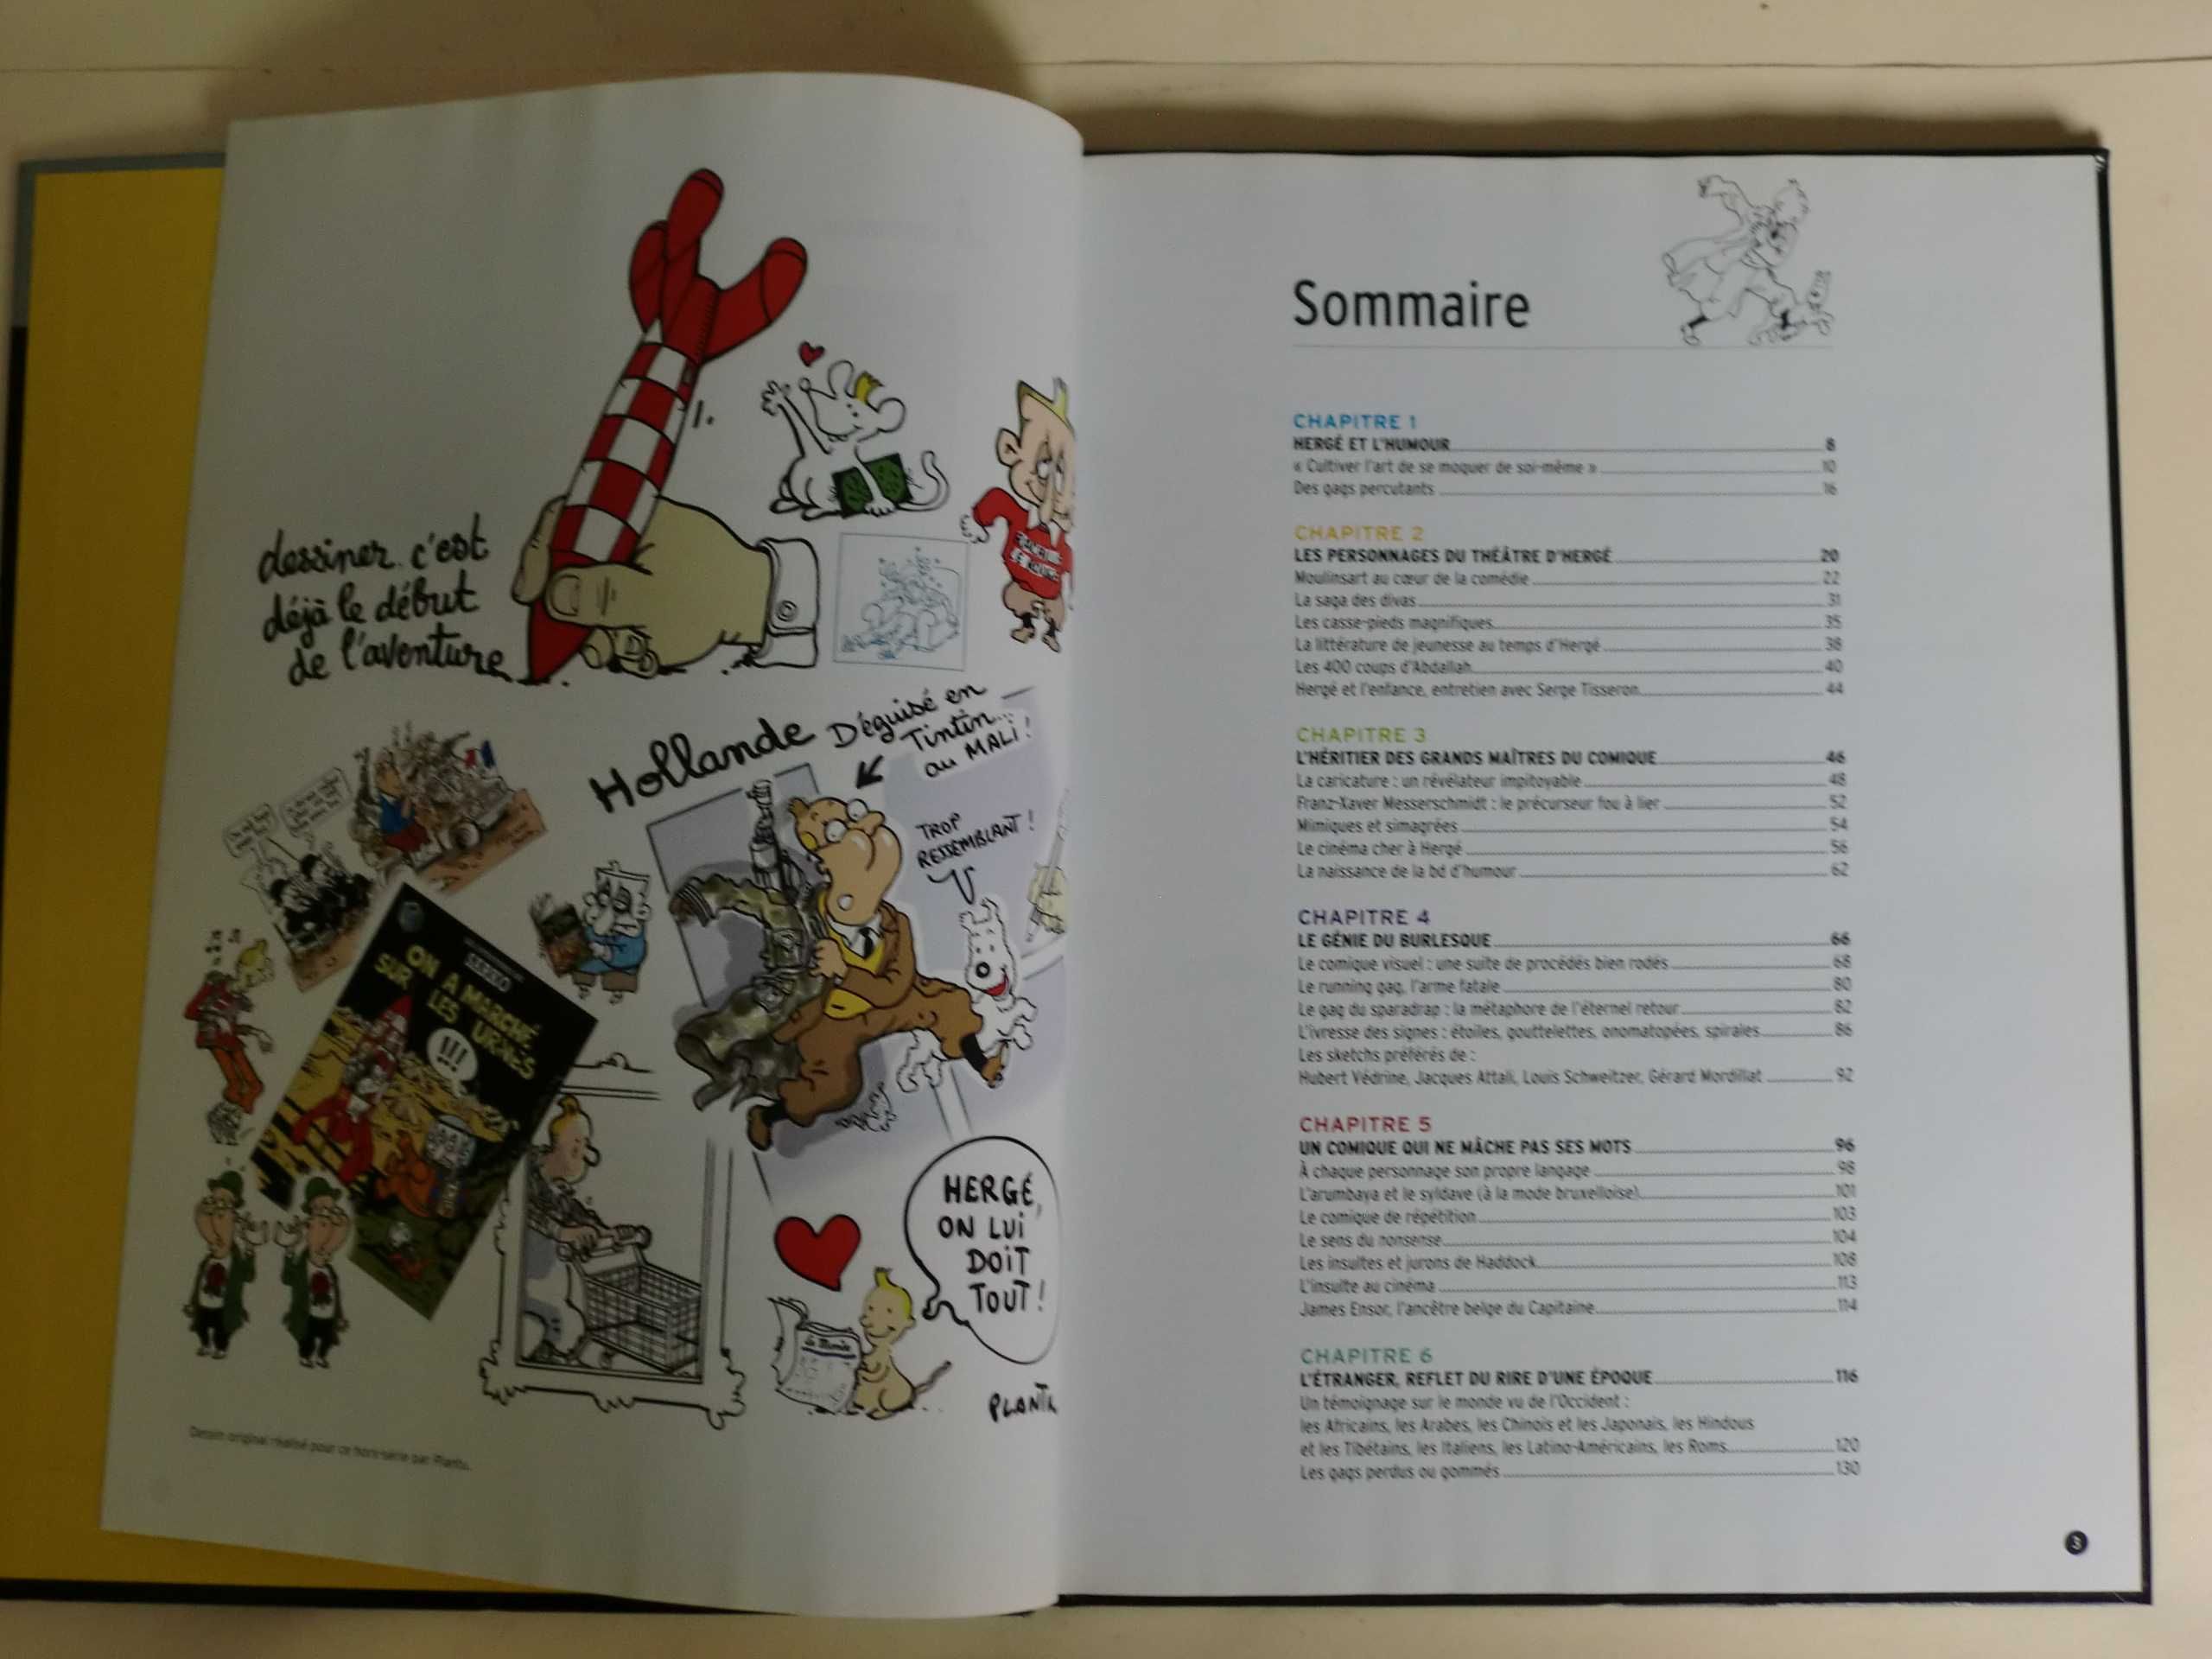 dessiner c'est
déjà le début
de l'aventure
Hollande Déguisé en
Tintin...
au MALI !
TROP
RESSEMBLANT !
ON A MARCHÉ
SUR LES URNES
!!!
HERGÉ,
ON LUI
DOIT
TOUT !
Le Monde
PLANTU
Dessin original réalisé pour ce hors-série par Plantu.
Sommaire
CHAPITRE 1
HERGÉ ET L'HUMOUR 8
« Cultiver l'art de se moquer de soi-même » 10
Des gags percutants 16
CHAPITRE 2
LES PERSONNAGES DU THÉÂTRE D'HERGÉ 20
Moulinsart au cœur de la comédie 22
La saga des divas 31
Les casse-pieds magnifiques 35
La littérature de jeunesse au temps d'Hergé 38
Les 400 coups d'Abdallah 40
Hergé et l'enfance, entretien avec Serge Tisseron 44
CHAPITRE 3
L'HÉRITIER DES GRANDS MAÎTRES DU COMIQUE 46
La caricature : un révélateur impitoyable 48
Franz-Xaver Messerschmidt : le précurseur fou à lier 52
Mimiques et simagrées 54
Le cinéma cher à Hergé 56
La naissance de la bd d'humour 62
CHAPITRE 4
LE GÉNIE DU BURLESQUE 66
Le comique visuel : une suite de procédés bien rodés 68
Le running gag, l'arme fatale 80
Le gag du sparadrap : la métaphore de l'éternel retour 82
L'ivresse des signes : étoiles, gouttelettes, onomatopées, spirales 86
Les sketchs préférés de :
Hubert Védrine, Jacques Attali, Louis Schweitzer, Gérard Mordillat 92
CHAPITRE 5
UN COMIQUE QUI NE MÂCHE PAS SES MOTS 96
À chaque personnage son propre langage 98
L'arumbaya et le syldave (à la mode bruxelloise) 101
Le comique de répétition 103
Le sens du nonsense 104
Les insultes et jurons de Haddock 108
L'insulte au cinéma 113
James Ensor, l'ancêtre belge du Capitaine 114
CHAPITRE 6
L'ÉTRANGER, REFLET DU RIRE D'UNE ÉPOQUE 116
Un témoignage sur le monde vu de l'Occident :
les Africains, les Arabes, les Chinois et les Japonais, les Hindous
et les Tibétains, les Italiens, les Latino-Américains, les Roms 120
Les gags perdus ou gommés 130
3